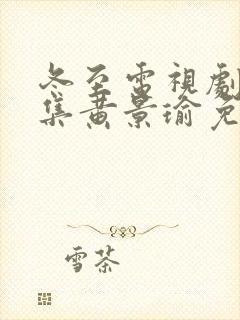 冬至電視劇
集黃景瑜免
雪茶